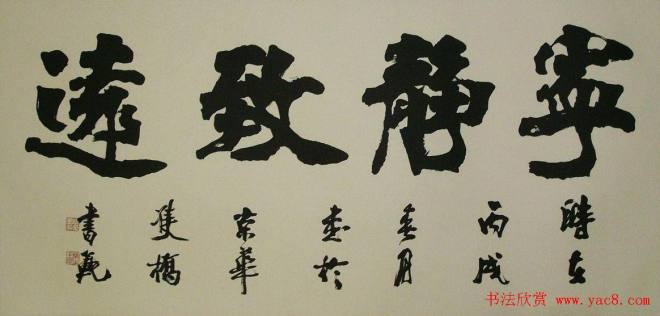 寧靜致遠
時在
丙戌
月
於
京華
雙橋
書
书法欣赏 www.yac8.com